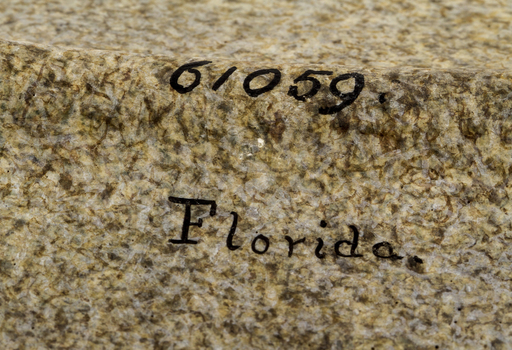 61059.
Florida.